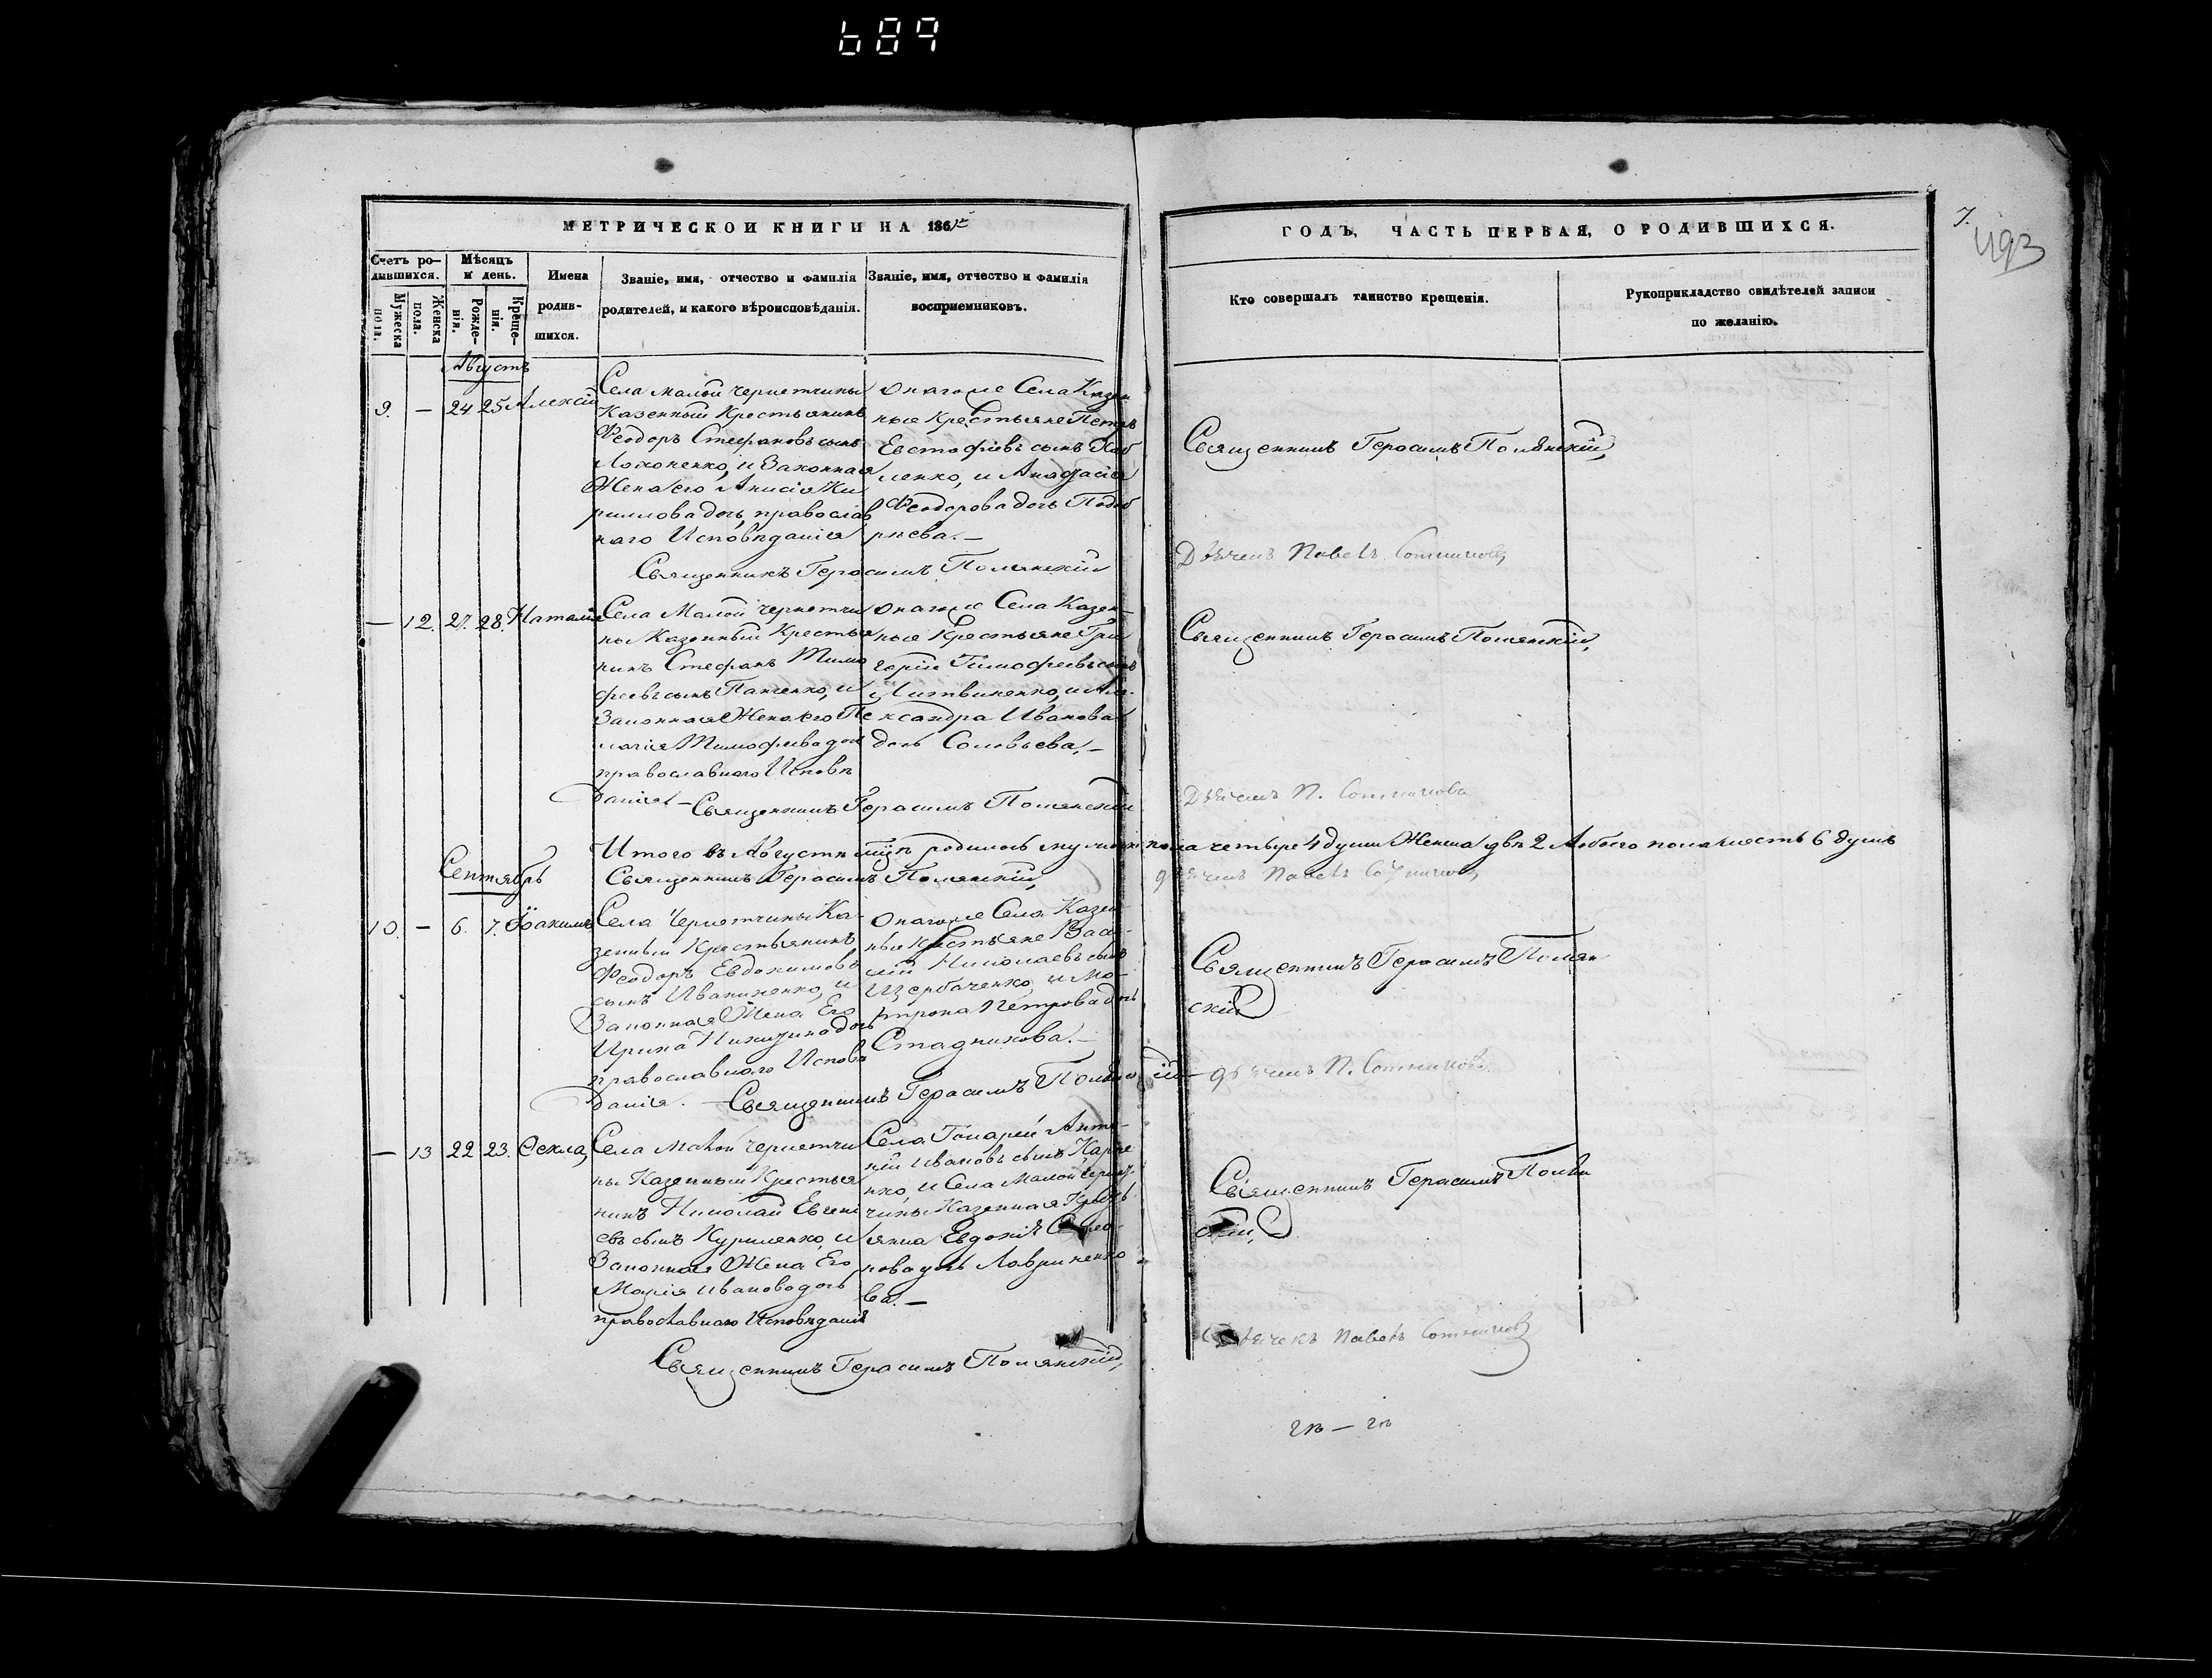 689
МЕТРИЧЕСКОЙ КНИГИ НА 186
ГОДЪ, ЧАСТЬ ПЕРВАЯ, О РОДИВШИХСЯ.
7.
Счетъ ро-
дившихся.
Мѣсяцъ
и день.
Мужеска
пола.
Женска
пола.
Рожде-
нія.
Креще-
нія.
Имена
родив-
шихся.
Званіе, имя, отчество и фамилія
родителей, и какого вѣроисповѣданія.
Званіе, имя, отчество и фамилія
восприемниковъ.
Кто совершалъ таинство крещенія.
Рукоприкладство свидѣтелей записи
по желанію.
Августъ
9. — 24 25 Алексій
Села Малой Чернетчины
Казенный Крестьянинъ
Феодоръ Стефановъ сынъ
и Законная
Жена его Анисія Ки
рилова дочь, православ
наго Исповѣданія
Онагоже Села Казен
ные Крестьяне Петръ
Евстафіевъ сынъ Пав
ленко, и Анастасія
Феодорова дочь
Священникъ Герасимъ Полянскій
Священникъ Герасимъ Полянскій,
Дьячекъ Павелъ Сотниковъ
— 12. 27. 28. Наталія
Села Малой Чернетчи
ны Казенный Крестья
нинъ Стефанъ Тимо
феевъ сынъ Панченко, и
Законная Жена его Пе
лагія Тимофеева дочь
православнаго Исповѣ
данія —
Онагоже Села Казен-
ные Крестьяне Гри
горій Тимофеевъ сынъ
Литвиненко, и Але-
ксандра Иванова
дочь Соловьева. —
Священникъ Герасимъ Полянскій
Священникъ Герасимъ Полянскій,
Дьячекъ П. Сотниковъ
Итого въ Августѣ мцѣ родилось мужска пола четыре 4 души Женска двѣ 2 Обоего пола шесть 6 душъ
Священникъ Герасимъ Полянскій,
дьячекъ Павелъ Сотниковъ
Сентябрь
10. — 6. 7. Іоакимъ
Села Чернетчины Ка-
зенный Крестьянинъ
Феодоръ Евдокимовъ
сынъ Иваниненко, и
Законная Жена Его
Ирина Никитина дочь
православнаго Исповѣ
данія.
Онагоже Села Казен-
ные Крестьяне Васи-
лій Николаевъ сынъ
Щербаченко, и Мо-
трона Петрова дочь
Стадникова. —
Священникъ Герасимъ Полянскій
Священникъ Герасимъ Полян
скій
дьячекъ П. Сотниковъ
— 13 22 23. Ѳекла,
Села Малой Чернетчи
ны Казенный Крестья
нинъ Николай Евгени
евъ сынъ Куриленко, и
Законная Жена Его
Марія Иванова дочь
православнаго Исповѣданія
Села Токарей Анто-
ній Ивановъ сынъ Карпе
нко, и Села Малой Чернет-
чины Казенная Кресть
янка Евдокія
нова дочь Лавриненко
ва. —
Священникъ Герасимъ Полян
скій,
Священникъ Герасимъ Полянскій,
Дьячекъ Павелъ Сотниковъ